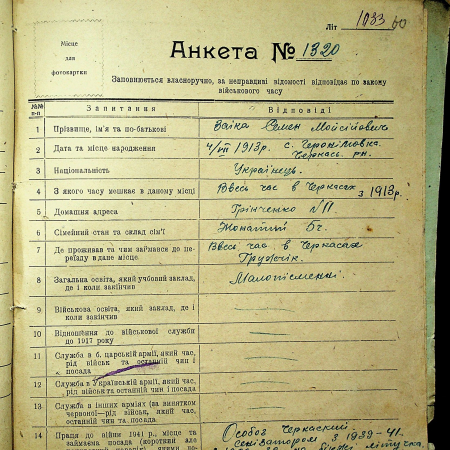 Літ 1033
Місце
для
фотокартки
Анкета № 1320
Заповнюється власноручно, за неправдиві відомості відповідає по закому
військового часу
№№ п-п Запитання Відповіді
1 Прізвище, ім'я та по-батькові Заїка Семен Мойсійович
2 Дата та місце народження 4/VII 1913р. с. Геронімовка
Черкась. рн.
3 Національність Українець.
4 З якого часу мешкає в даному місці Ввесь час в Черкасах з 1913р.
5 Домашня адреса Грінченко
6 Сімейний стан та склад сім'ї Жонатий
7 Де проживав та чим займався до переїзду в дане місце Ввесь час в Черкасах
Грузчік.
8 Загальна освіта, який учбовий заклад,
де і коли закінчив Малопісменні.
9 Військова освіта, який заклад, де і
коли закінчив
10 Відношення до військової служби
до 1917 року
11 Служба в б. царській армії, який час,
рід військ та останній чин і
посада
12 Служба в Українській армії, який час,
рід військ та останній чин і посада
13 Служба в інших арміях (за винятком
червоної—рід військ, який час,
останній чин та посада
14 Праця до війни 1941 р., місце та
займана посада (коротких
Черкаский
з 1939-41.